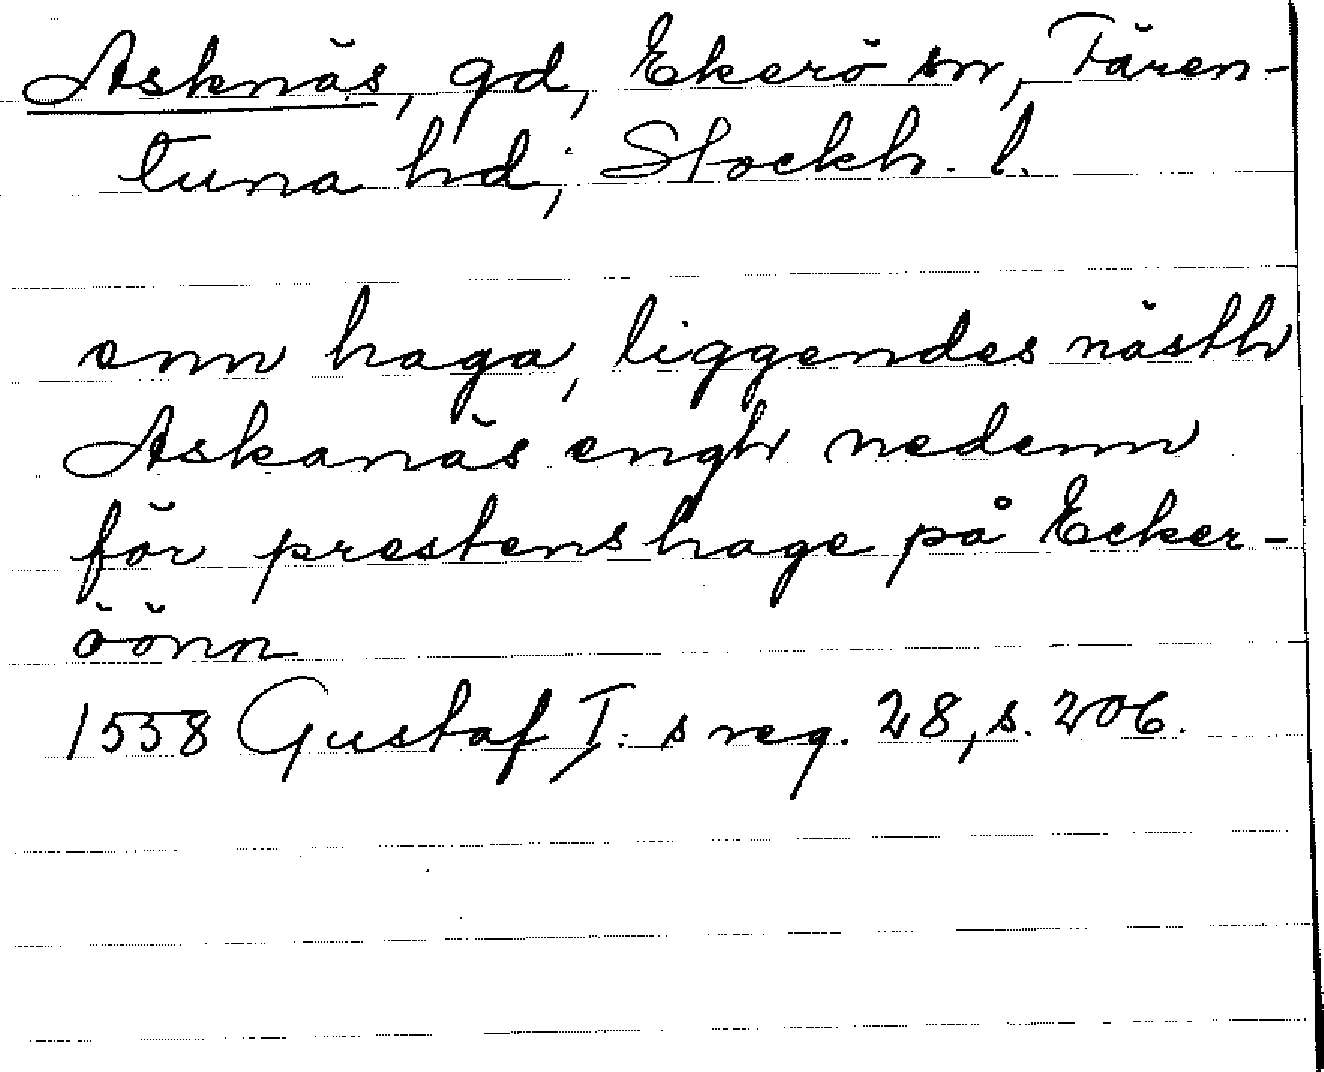 Asknäs, gd, Ekerö sn, Fären-
tuna hd, Stockh. l.
enn haga, liggendes nästh
Askanäs engh nedenn
för prestens hage på Ecker-
öönn
1558 Gustaf I:s reg. 28, s. 206.